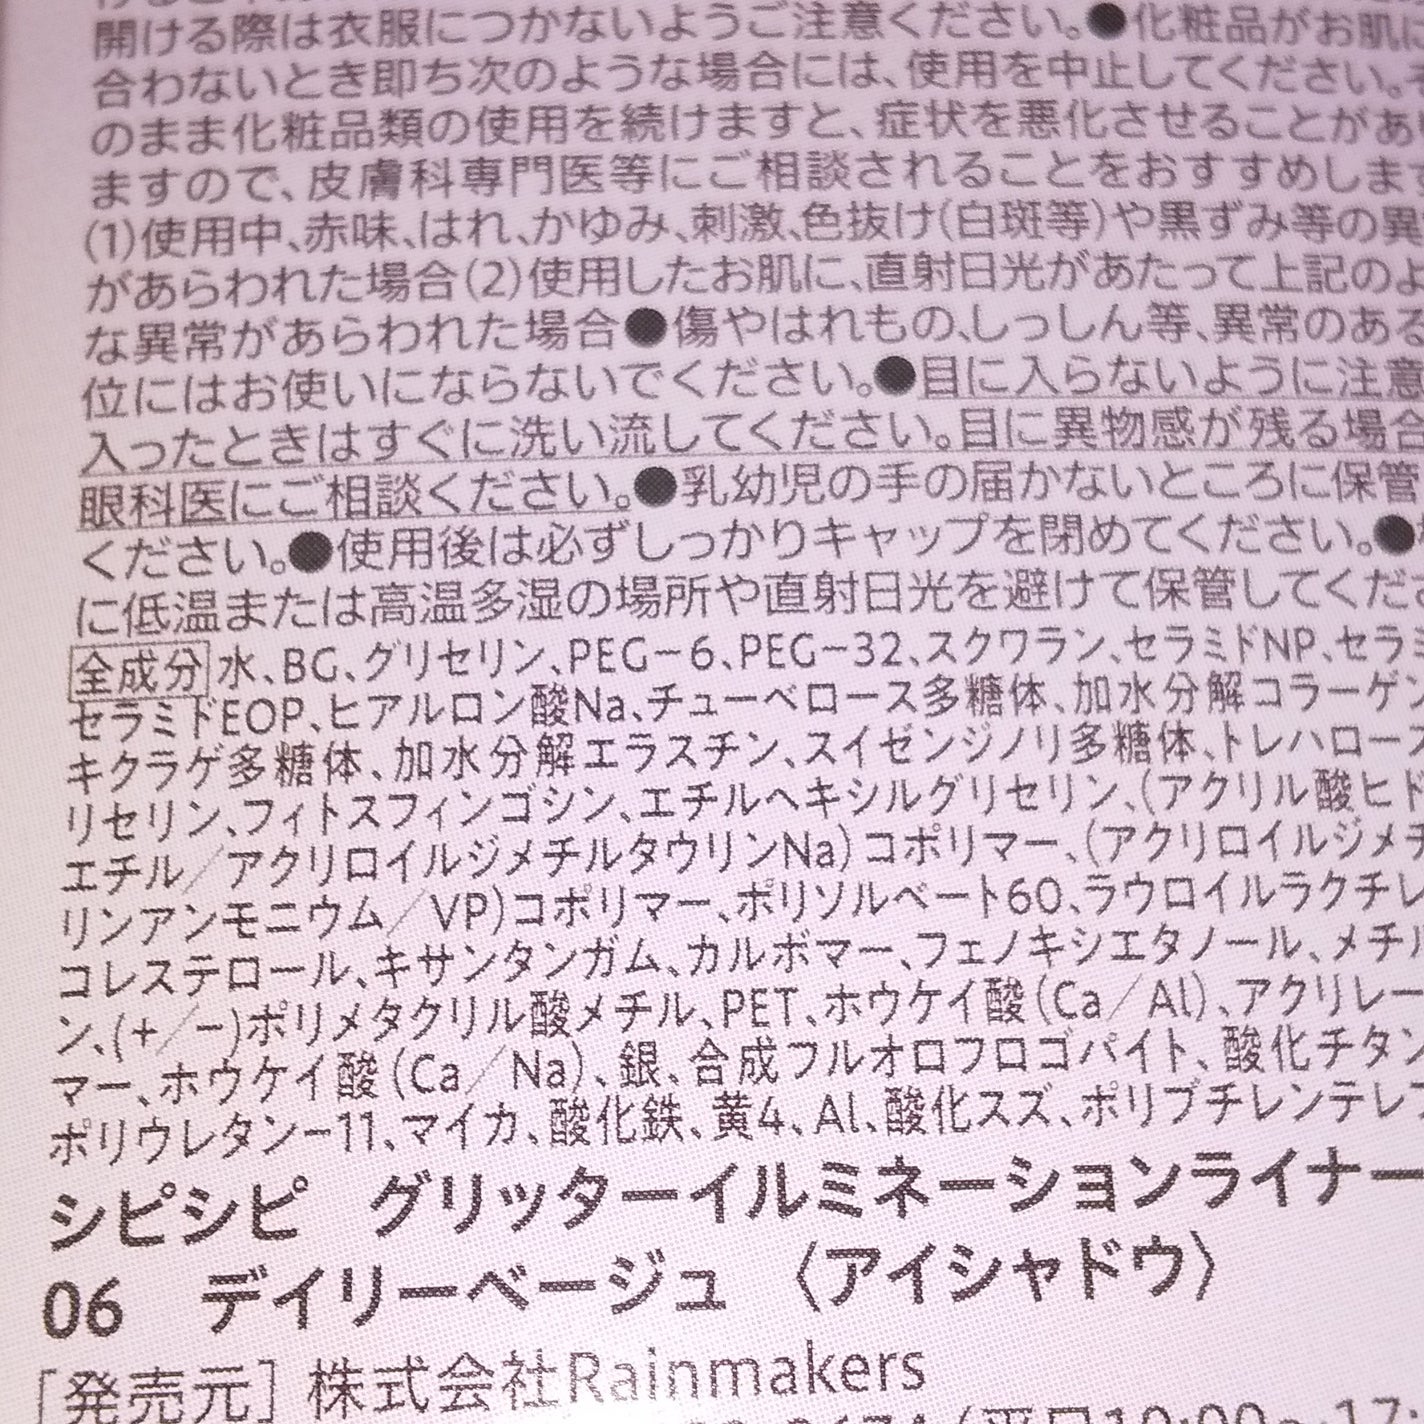 開ける際は衣服につかないようご注意ください。●化粧品がお肌に
合わないとき即ち次のような場合には、使用を中止してください。そ
のまま化粧品類の使用を続けますと、症状を悪化させることがあ
ますので、皮膚科専門医等にご相談されることをおすすめします
(1)使用中、赤味、はれ、かゆみ、刺激、色抜け(白斑等)や黒ずみ等の異
があらわれた場合(2)使用したお肌に、直射日光があたって上記のよ
な異常があらわれた場合●傷やはれもの、しっしん等、異常のある
位にはお使いにならないでください。●目に入らないように注意
入ったときはすぐに洗い流してください。目に異物感が残る場合
眼科医にご相談ください。●乳幼児の手の届かないところに保管
ください。●使用後は必ずしっかりキャップを閉めてください。●
に低温または高温多湿の場所や直射日光を避けて保管してくださ
全成分 水、BG、グリセリン、PEG−6、PEG−32、スクワラン、セラミドNP、セラミ
セラミドEOP、ヒアルロン酸Na、チューベロース多糖体、加水分解コラーゲン
キクラゲ多糖体、加水分解エラスチン、スイゼンジノリ多糖体、トレハロース
リセリン、フィトスフィンゴシン、エチルヘキシルグリセリン、(アクリル酸ヒド
エチル／アクリロイルジメチルタウリンNa)コポリマー、(アクリロイルジメチ
リンアンモニウム／VP)コポリマー、ポリソルベート60、ラウロイルラクチレ
コレステロール、キサンタンガム、カルボマー、フェノキシエタノール、メチル
ン、(+／−)ポリメタクリル酸メチル、PET、ホウケイ酸(Ca／Al)、アクリレー
マー、ホウケイ酸(Ca／Na)、銀、合成フルオロフロゴパイト、酸化チタン
ポリウレタン−11、マイカ、酸化鉄、黄4、Al、酸化スズ、ポリブチレンテレフ
シピシピ グリッターイルミネーションライナー
06 デイリーベージュ 〈アイシャドウ〉
[発売元] 株式会社Rainmakers